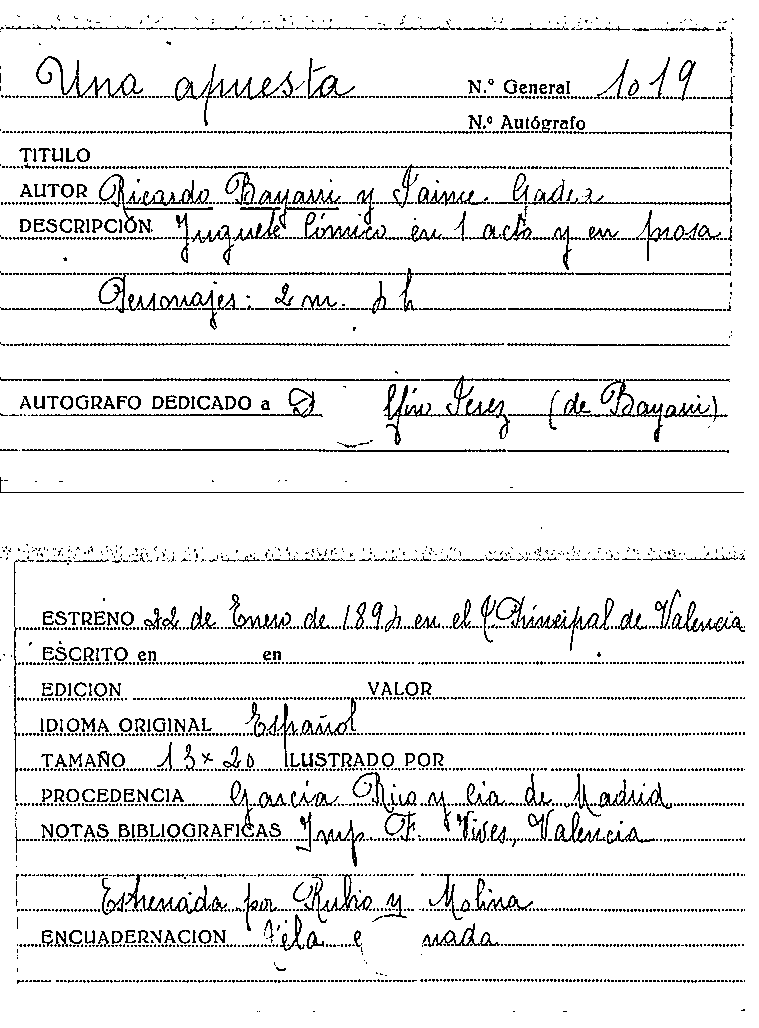 Una apuesta N.º General 1019
N.º Autógrafo
TITULO
AUTOR Ricardo Bayarri y Jaime
DESCRIPCIÓN Juguete Cómico en 1 acto y en prosa
Personajes: 2 m. h
AUTOGRAFO DEDICADO a D Pérez (de Bayarri)
ESTRENO 22 de Enero de en el T. Principal de Valencia
ESCRITO en en
EDICION VALOR
IDIOMA ORIGINAL Español
TAMAÑO 13 x 20 ILUSTRADO POR
PROCEDENCIA García Rico y Cia de Madrid
NOTAS BIBLIOGRAFICAS Imp. F. Vives, Valencia
Estrenada por Rubio y Molina
ENCUADERNACION Tela